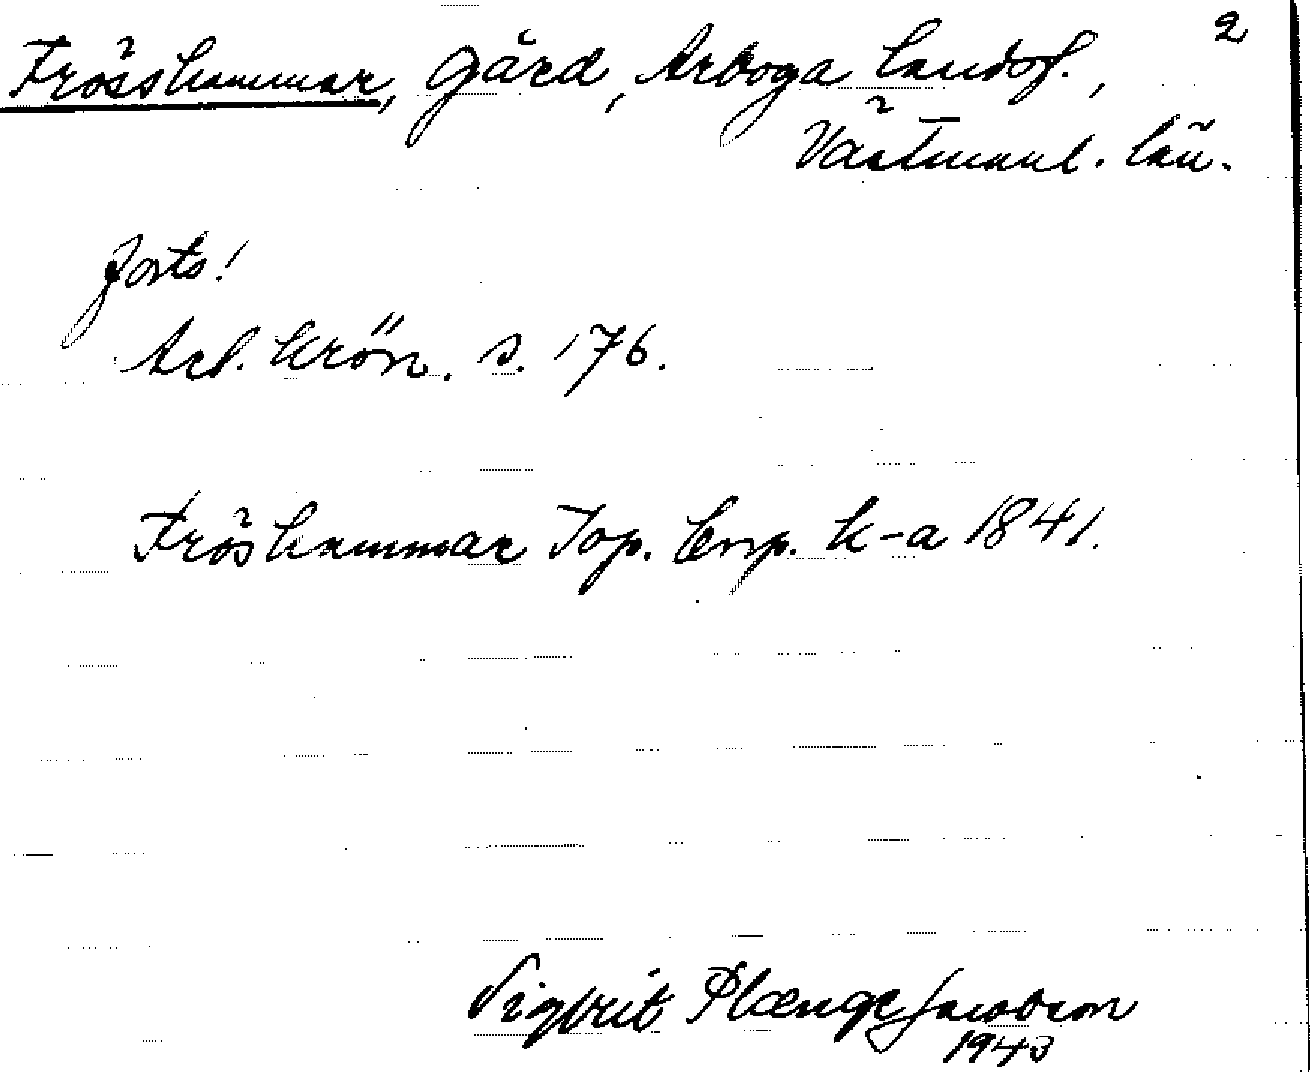 2
Frösshammar, gård, Arboga landsf.,
Västmanl. län.
forts!
Arb. krön. s. 176.
Fröshammar Top. Corp. k-a 1841.
Sigbrit Plænge Jacobson
1943